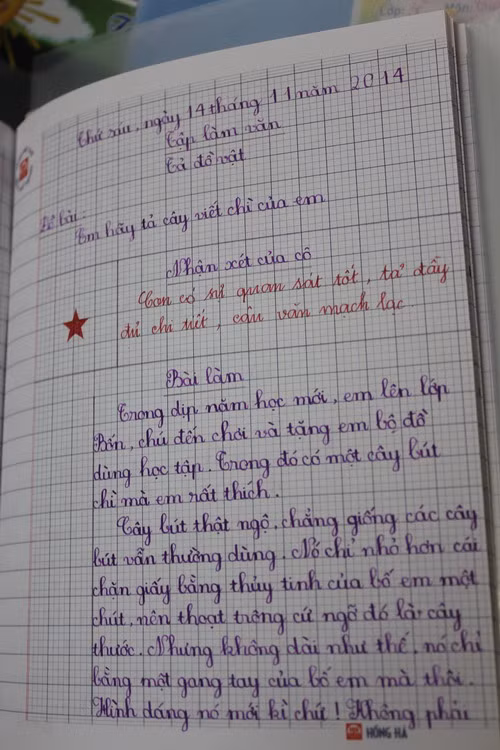 Lớp: Môn:
Thứ sáu, ngày 14 tháng 11 năm 2014
Tập làm văn
Tả đồ vật
Đề bài:
Em hãy tả cây viết chì của em
Nhận xét của cô
Con có sự quan sát tốt, tả đầy
đủ chi tiết, câu văn mạch lạc
Bài làm
Trong dịp năm học mới, em lên lớp
Bốn, chú đến chơi và tặng em bộ đồ
dùng học tập. Trong đó có một cây bút
chì mà em rất thích.
Cây bút thật ngộ, chẳng giống các cây
bút vẫn thường dùng. Nó chỉ nhỏ hơn cái
chặn giấy bằng thủy tinh của bố em một
chút, nên thoạt trông cứ ngỡ đó là cây
thước. Nhưng không dài như thế, nó chỉ
bằng một gang tay của bố em mà thôi.
Hình dáng nó mới kì chứ! Không phải
HỒNG HÀ